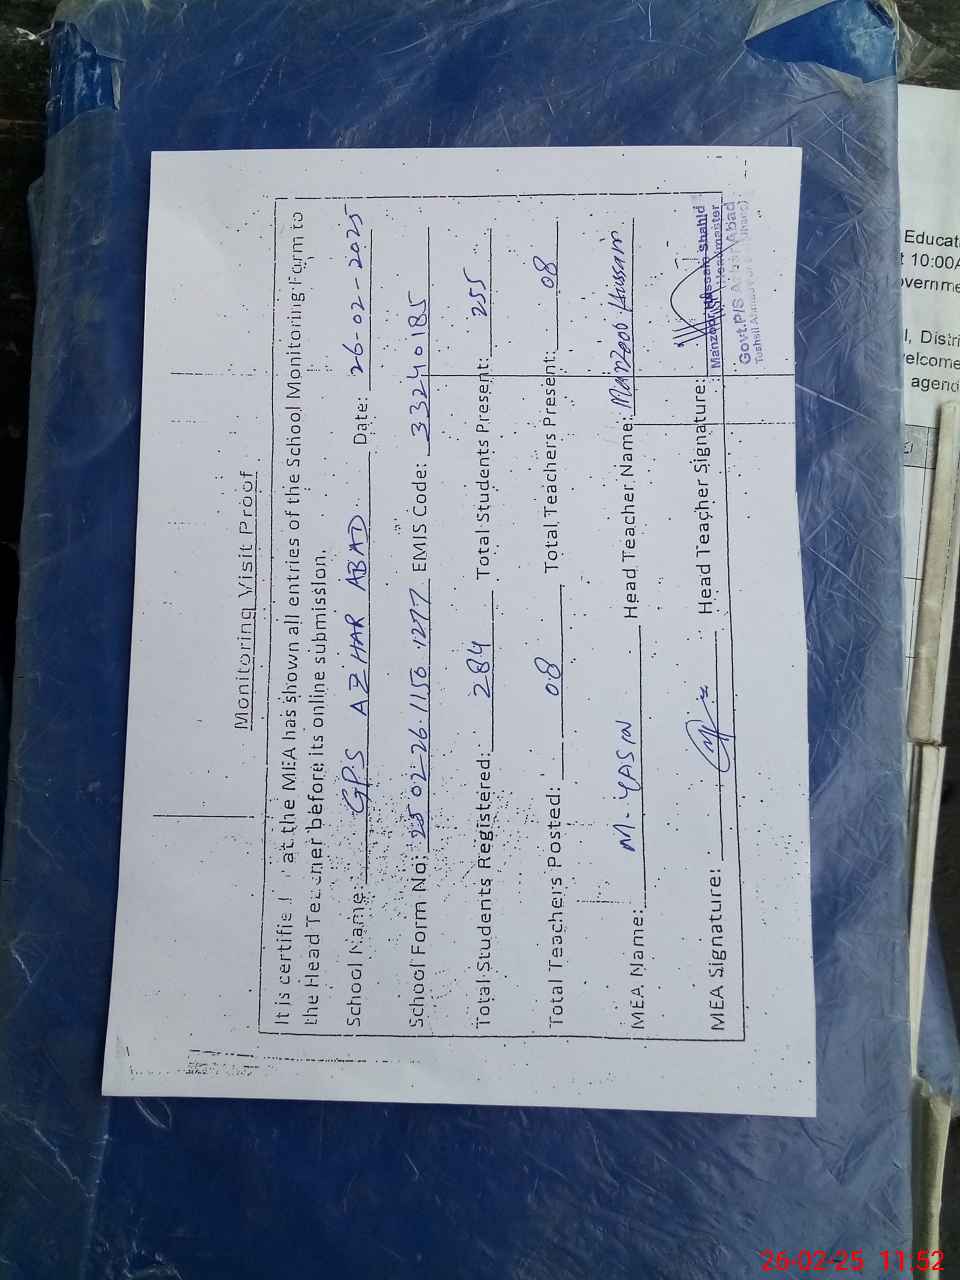 Monitoring Visit Proof
It is certified at the MEA has shown all entries of the School Monitoring Form to
the Head Teacher before its online submission.
School Name: GPS AZHAR ABAD Date: 26-02-2025
School Form No: 25 02-26-1150 1277 EMIS Code: 33240185
Total Students Registered: 284 Total Students Present: 255
Total Teachers Posted: 08 Total Teachers Present: 08
MEA Name: M. YASIN Head Teacher Name: Manzoor Hussain
MEA Signature: Head Teacher Signature:
Manzoor Hussain Shahid
Headmaster
Govt.P/S Azhar Abad
Educati
10:00A
overnme
l, Distri
elcome
agend
26-02-25 11:52